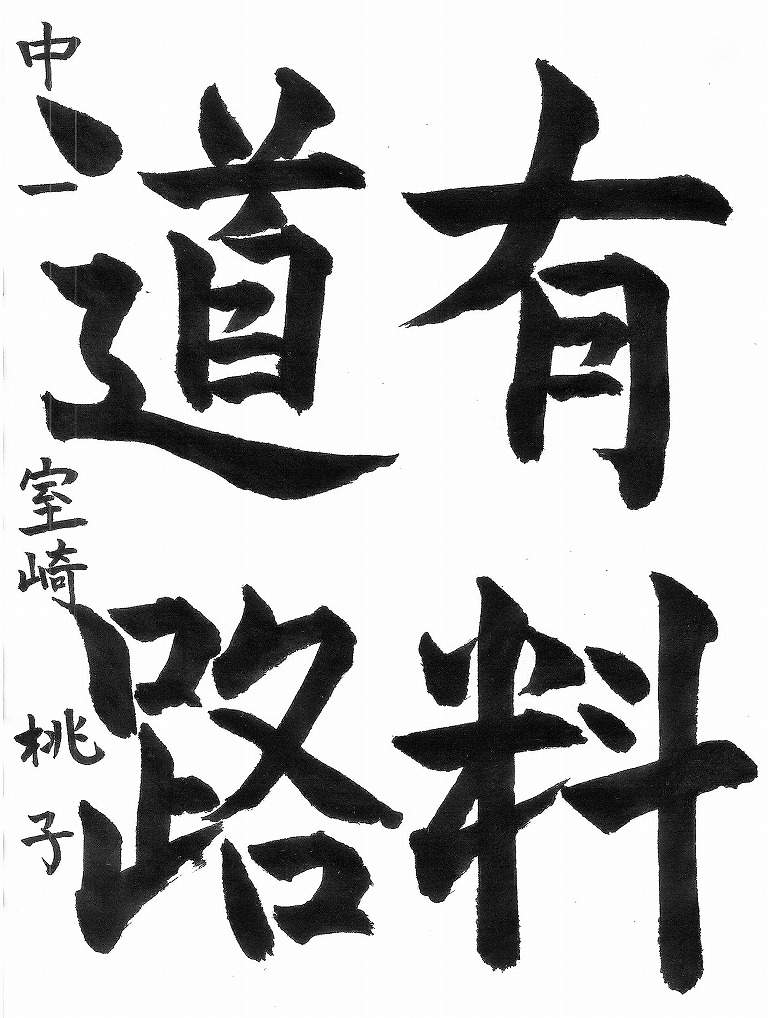 有料
道路
中一 室崎 桃子